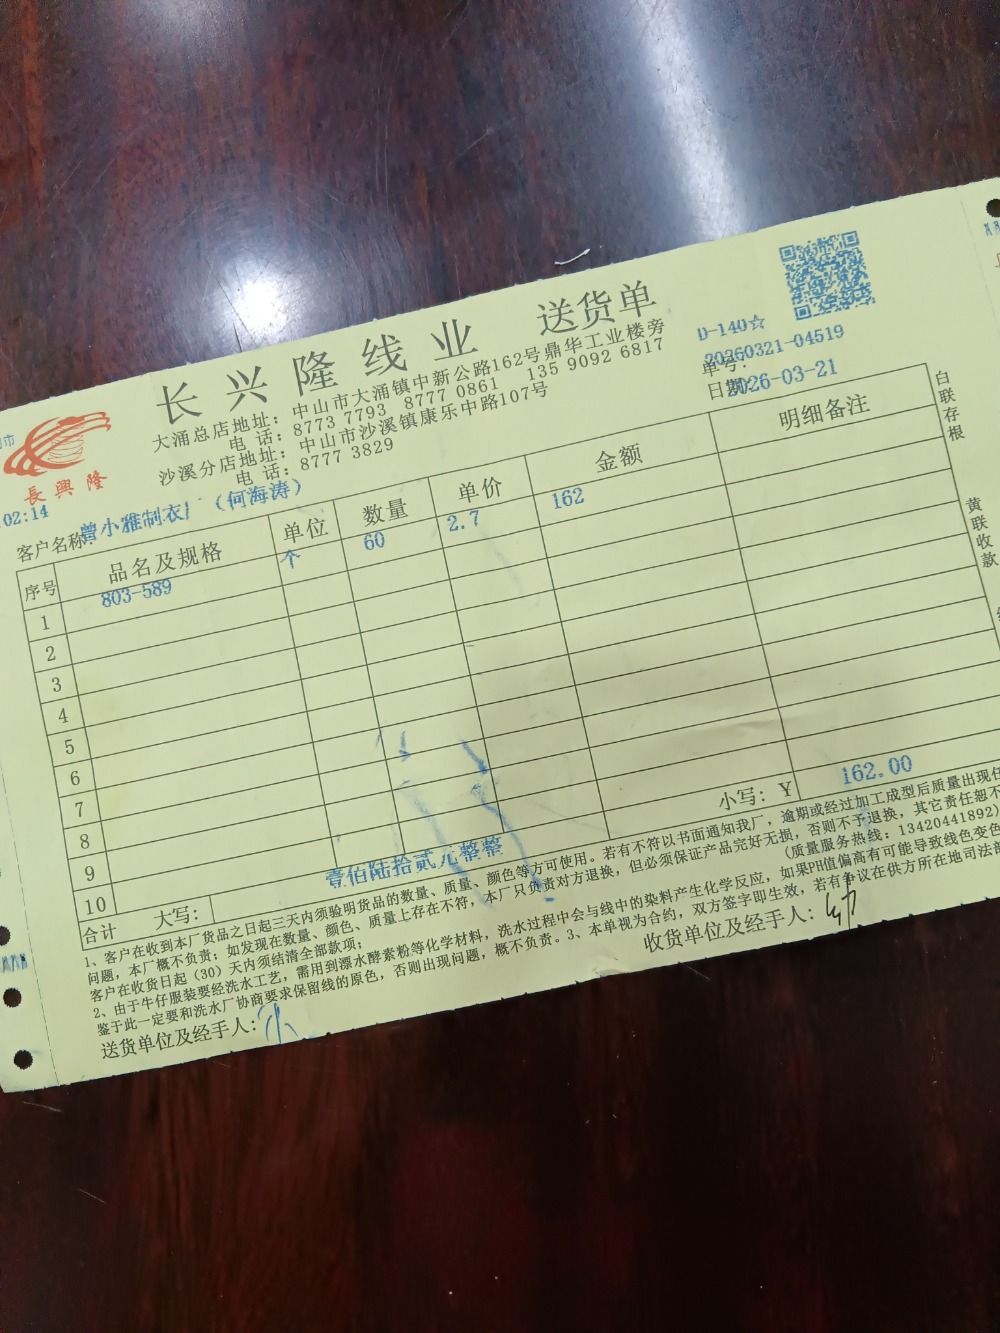 长兴隆线业 送货单
D-140☆
大涌总店地址：中山市大涌镇中新公路162号鼎华工业楼旁
电 话：8773 7793 8777 0861 135 9092 6817
沙溪分店地址：中山市沙溪镇康乐中路107号
电 话：8777 3829
单号：20260321-04519
日期：2026-03-21
長興隆
02:14
客户名称：曾小雅制衣厂（何海涛）
序号 品名及规格 单位 数量 单价 金额 明细备注
1 803-589 个 60 2.7 162
2
3
4
5
6
7
8
9
10
小写：￥ 162.00
合计 大写： 壹佰陆拾贰元整整
1、客户在收到本厂货品之日起三天内须验明货品的数量、质量、颜色等方可使用。若有不符以书面通知我厂，逾期或经过加工成型后质量出现任
问题，本厂概不负责；如发现在数量、颜色、质量上存在不符，本厂只负责对方退换，但必须保证产品完好无损，否则不予退换，其它责任恕不
客户在收货日起（30）天内须结清全部款项； （质量服务热线：13420441892）
2、由于牛仔服装要经洗水工艺，需用到漂水酵素粉等化学材料，洗水过程中会与线中的染料产生化学反应，如果PH值偏高有可能导致线色变色
鉴于此一定要和洗水厂协商要求保留线的原色，否则出现问题，概不负责。3、本单视为合约，双方签字即生效，若有争议在供方所在地司法部
送货单位及经手人：
收货单位及经手人：
白联存根
黄联收款